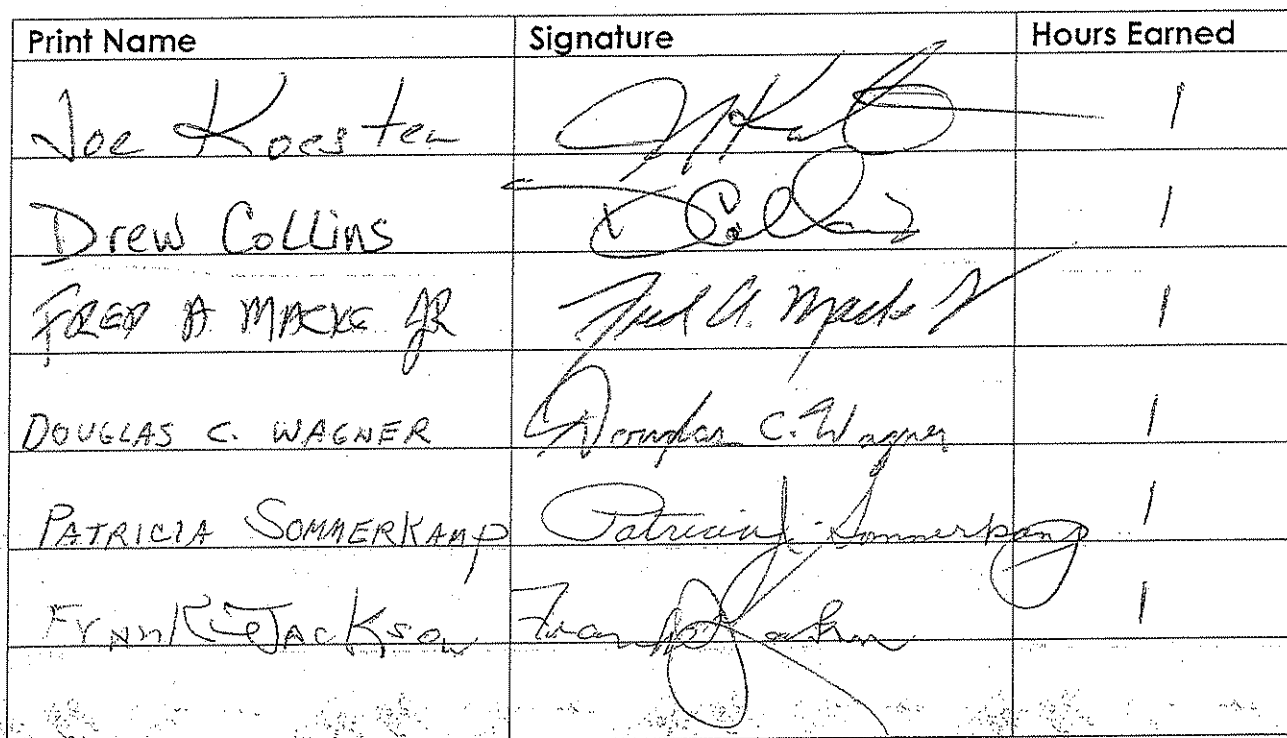 Print Name Signature Hours Earned
Joe Koester 1
Drew Collins D Collins 1
FRED A MACKE JR Fred A. Macke Jr 1
DOUGLAS C. WAGNER Douglas C. Wagner 1
PATRICIA SOMMERKAMP Patricia J. Sommerkamp 1
Frank Jackson Frank Jackson 1